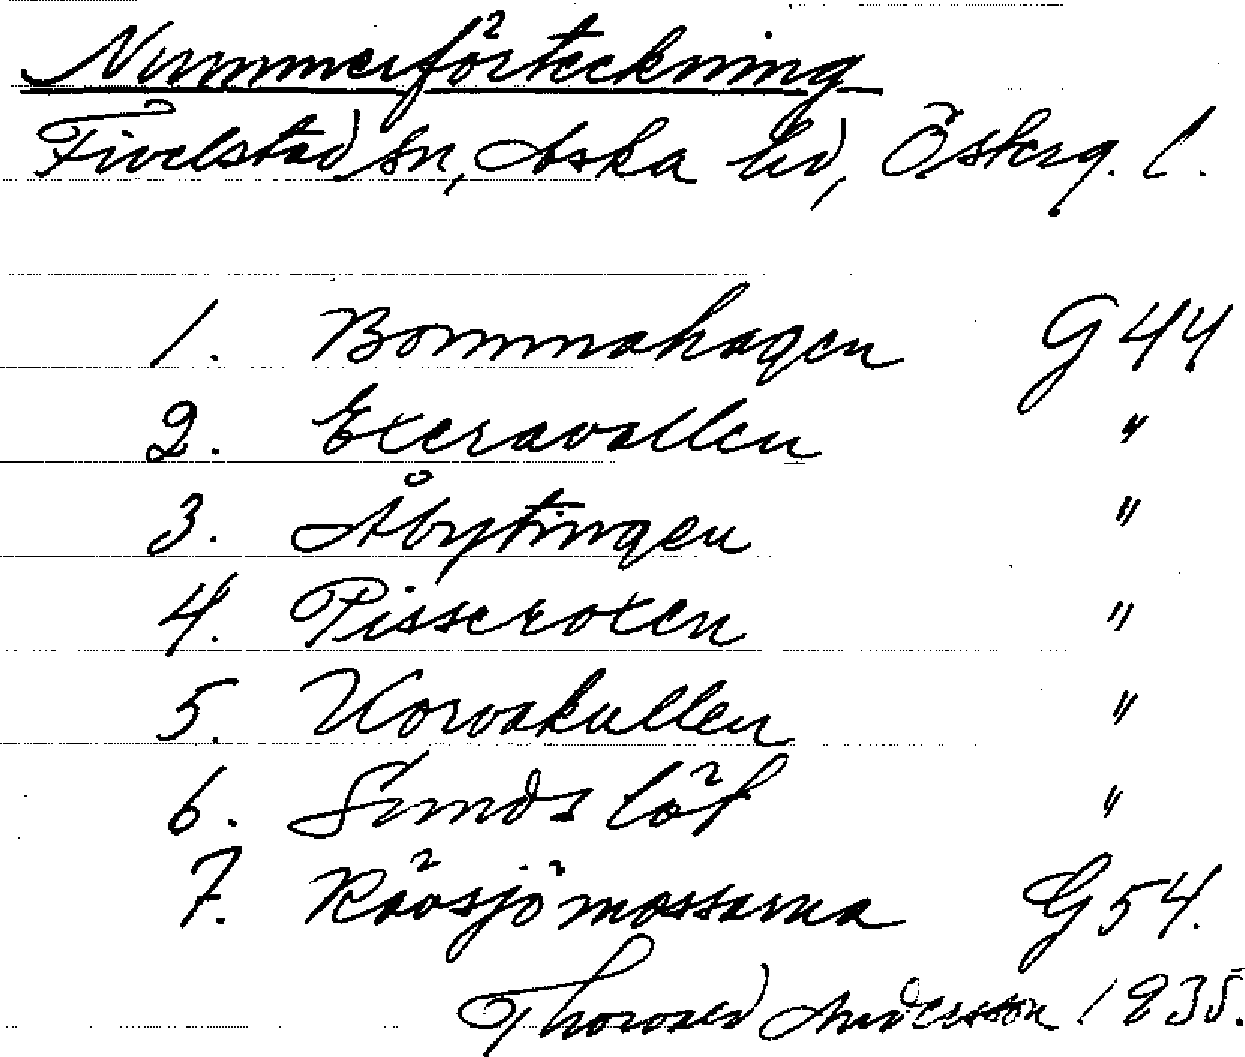 Nummerförteckning
Fivelstad sn, Aska hd, Österg. l.
1. Bommahagen G 44
2. Exeravallen "
3. Åbytingen "
4. Pisseroten "
5. Korvakullen "
6. Sunds löt "
7. Rävsjömossarna G 54.
Thorvald Andersson 1935.